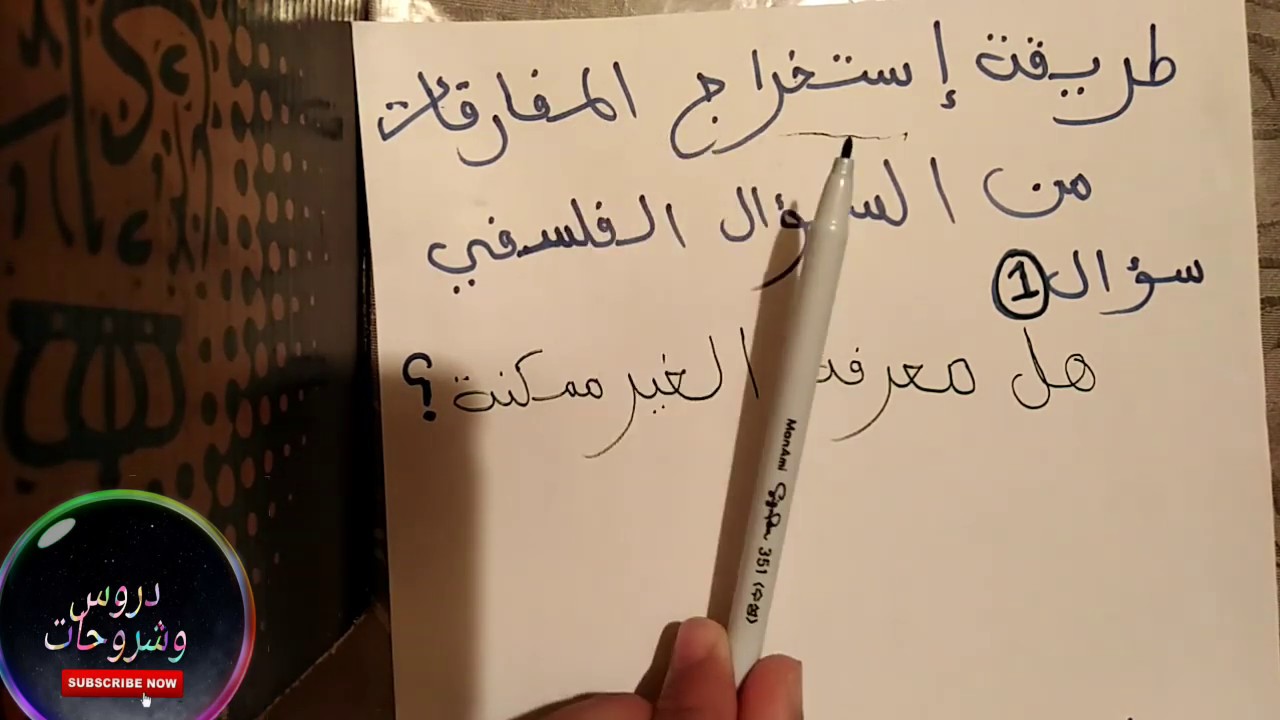 طريقة إستخراج المفارقات
من السؤال الفلسفي
سؤال 1
هل معرفة الغير ممكنة ؟
MonAmi Sign Pen 351 (수성)
دروس
وشروحات
SUBSCRIBE NOW